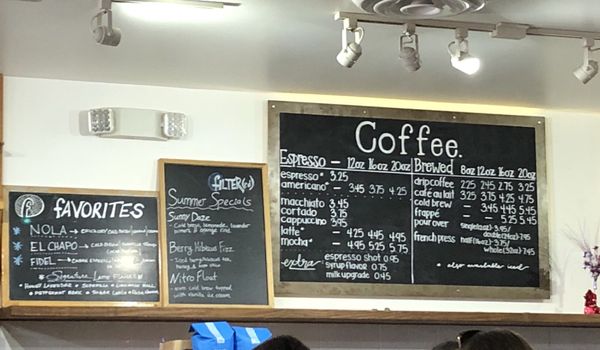 FAVORITES
NOLA
EL CHAPO
FIDEL
Signature Latte Flavors
FILTER(ed)
Summer Specials
Sunny Daze
Cold brew, lemonade, lavender
Berry Hibiscus Fizz
Iced berry/hibiscus tea,
Nitro Float
nitro cold brew topped
with vanilla ice cream
Coffee.
Espresso – 12oz 16oz 20oz
espresso* 3.25
americano* – 3.45 3.75 4.25
macchiato 3.45
cortado 3.75
cappuccino 3.95
latte* – 4.25 4.45 4.95
mocha* – 4.95 5.25 5.75
extra
espresso shot 0.95
syrup flavor 0.75
milk upgrade 0.45
Brewed 8oz 12oz 16oz 20oz
drip coffee 2.25 2.45 2.75 3.25
café au lait 3.25 3.75 4.25 4.50
cold brew – 3.45 4.45 5.45
frappé – – 5.25 5.45
pour over single(12oz)-3.95/
double(24oz)-7.45
french press half(16oz)-3.75/
whole(32oz)-7.45
* also available iced